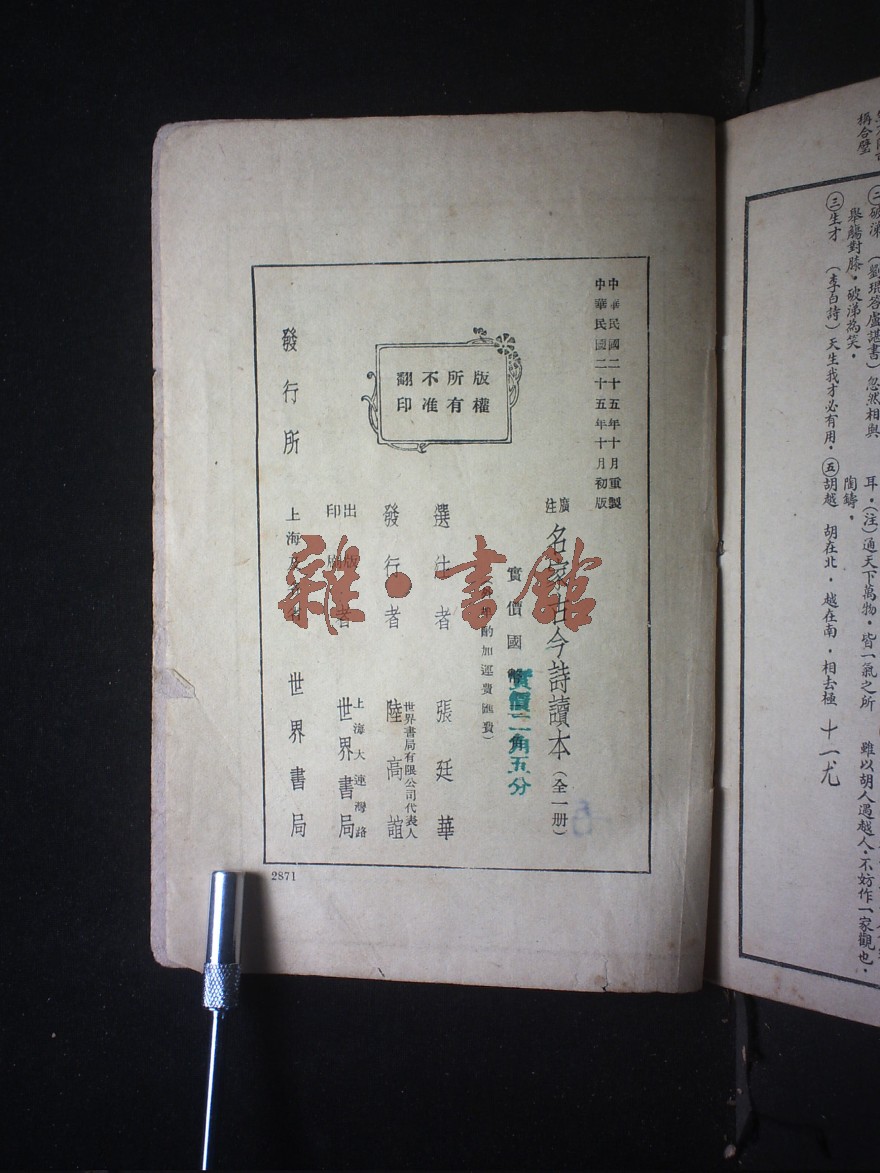 中華民國二十五年十月重製
中華民國二十五年十月初版
廣注 名家古今詩讀本（全一册）
實價國幣
實價二角五分
酌加運費匯費）
選註者 張廷華
發行者 世界書局有限公司代表人 陸高誼
出版印刷者 上海大連灣路 世界書局
發行所 上海及各省 世界書局
版權所有不准翻印
2871
雜·書館
稱合璧
破涕 （劉琨答盧諶書）忽然相與
舉觴對膝，破涕為笑。
㊂生才 （李白詩）天生我才必有用。
㊄胡越 胡在北，越在南，相去極
耳。（注）通天下萬物，皆一氣之所
陶鑄。
雖以胡人遇越人，不妨作一家觀也。
十一尤